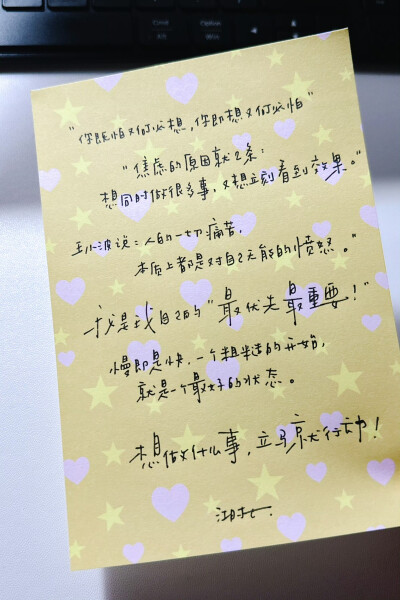 "你既怕又何必想，你即想又何必怕"
"焦虑的原因就2条：
想同时做很多事，又想立刻看到效果。"
王小波说：人的一切痛苦，
本质上都是对自己无能的愤怒。"
我是我自己的"最优先最重要！"
慢即是快，一个粗糙的开始，
就是一个最好的状态。
想做什么事，立马就行动！